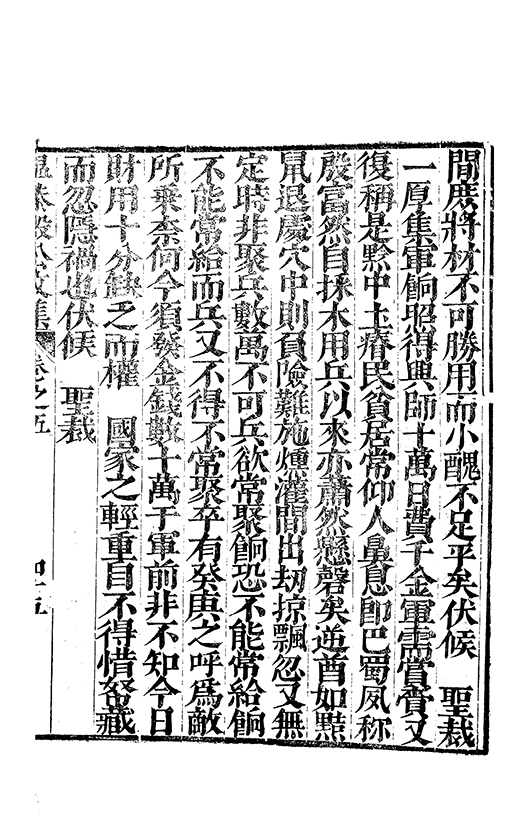 間庶將材不可勝用而小醜不足平矣伏候　聖裁
一厚集軍餉照得興師十萬日費千金軍需賞賚又
復稱是黔中土瘠民貧居常仰人鼻息即巴蜀夙称
殷富然自採木用兵以來亦蕭然懸磬矣逆酋如黠
鼠退處穴中則負險難施燻灌間出刧掠飄忽又無
定時非聚兵數萬不可兵欲常聚餉恐不能常給餉
不能常給而兵又不得不常聚卒有癸庚之呼爲敵
所乘奈何今須發金錢數十萬于軍前非不知今日
財用十分缺乏而權　國家之輕重自不得惜帑藏
而忍隱禍也伏候　聖裁
溫恭毅公文集　卷之五　四十五